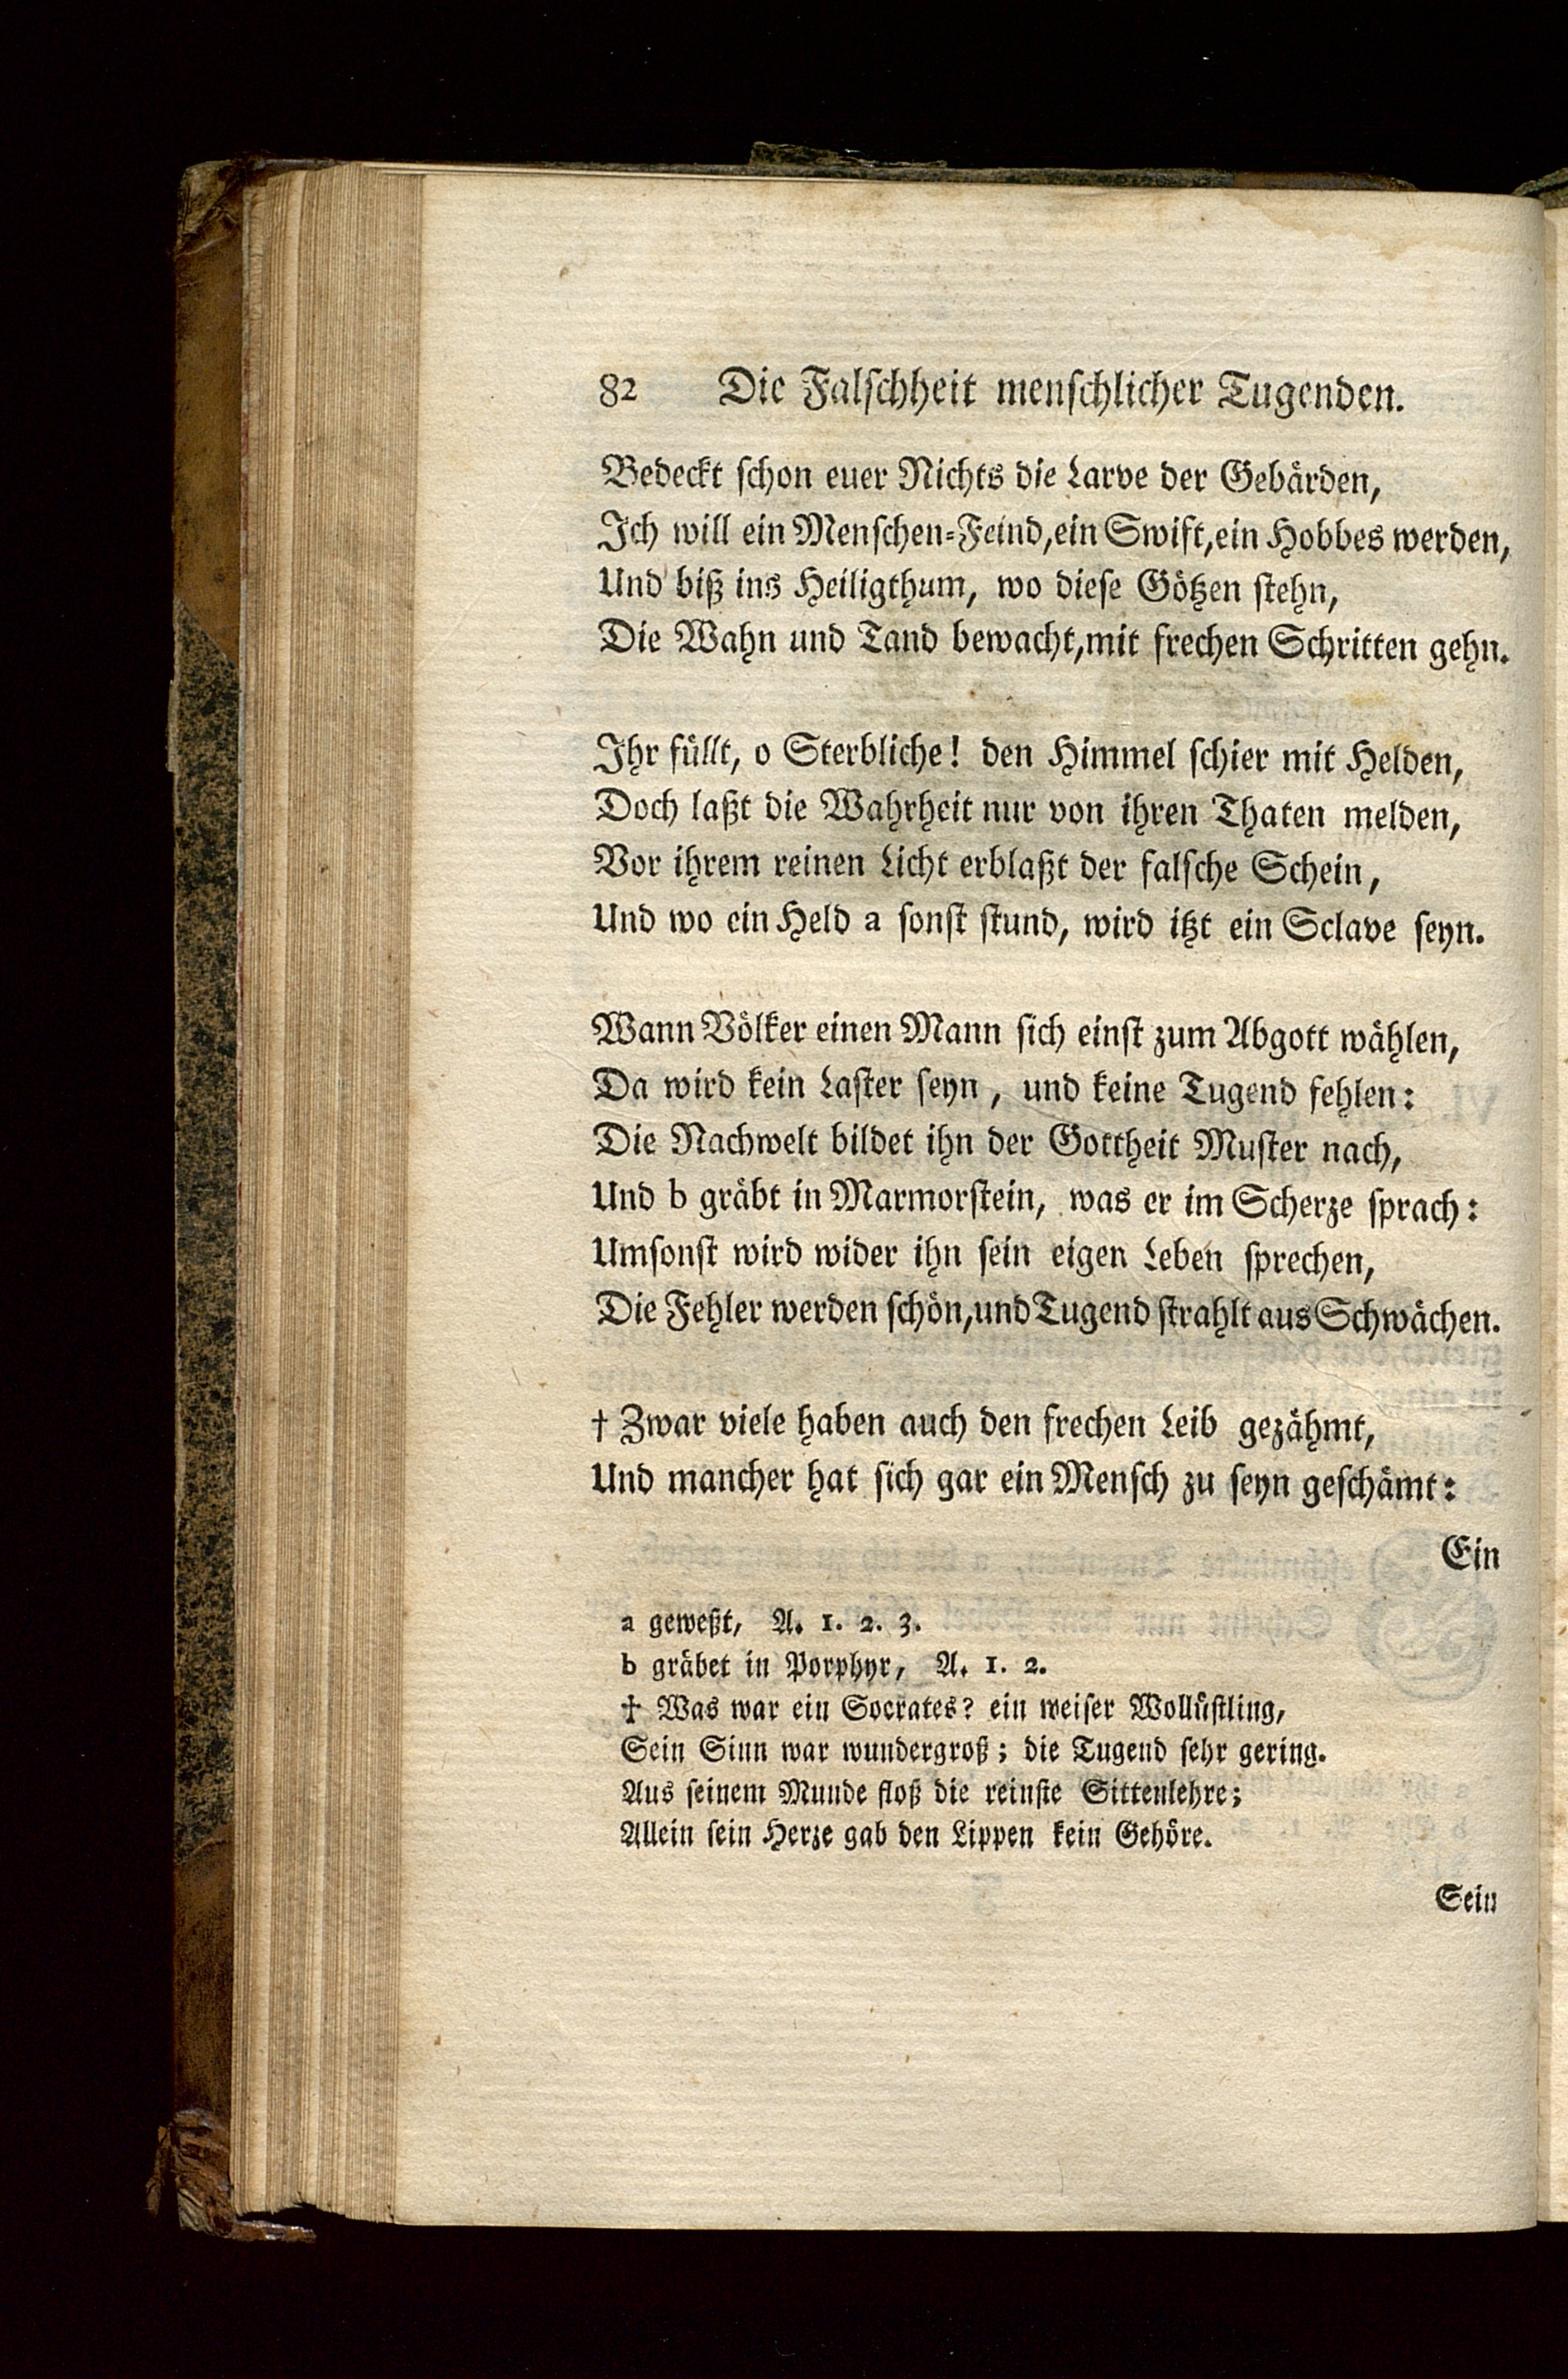 82 Die Falschheit menschlicher Tugenden.
Bedeckt schon euer Nichts die Larve der Gebärden,
Ich will ein Menschen-Feind, ein Swift, ein Hobbes werden,
Und biß ins Heiligthum, wo diese Götzen stehn,
Die Wahn und Tand bewacht, mit frechen Schritten gehn.
Ihr füllt, o Sterbliche! den Himmel schier mit Helden,
Doch laßt die Wahrheit nur von ihren Thaten melden,
Vor ihrem reinen Licht erblaßt der falsche Schein,
Und wo ein Held a sonst stund, wird itzt ein Sclave seyn.
Wann Völker einen Mann sich einst zum Abgott wählen,
Da wird kein Laster seyn, und keine Tugend fehlen:
Die Nachwelt bildet ihn der Gottheit Muster nach,
Und b gräbt in Marmorstein, was er im Scherze sprach:
Umsonst wird wider ihn sein eigen Leben sprechen,
Die Fehler werden schön, und Tugend strahlt aus Schwächen.
† Zwar viele haben auch den frechen Leib gezähmt,
Und mancher hat sich gar ein Mensch zu seyn geschämt:
Ein
a geweßt, A. 1. 2. 3.
b gräbet in Porphyr, A. 1. 2.
† Was war ein Socrates? ein weiser Wollüstling,
Sein Sinn war wundergroß; die Tugend sehr gering.
Aus seinem Munde floß die reinste Sittenlehre;
Allein sein Herze gab den Lippen kein Gehöre.
Sein